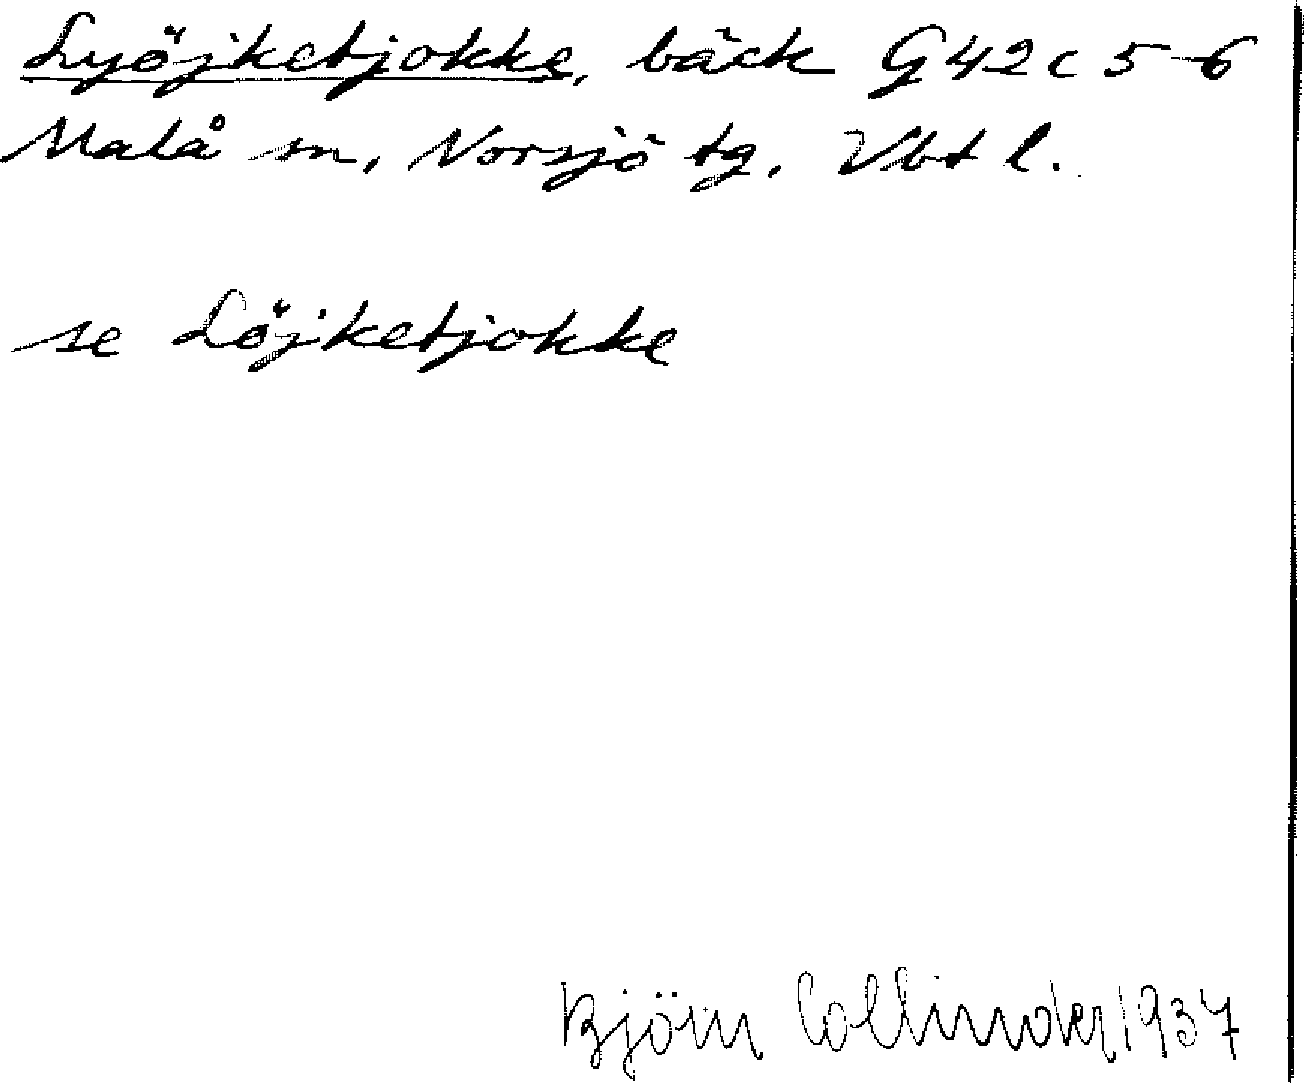 Lyöjketjokke, bäck G42c 5-6
Malå sn, Norsjö tg, Vbt l.
se Löjketjokke
Björn Collinder 1937